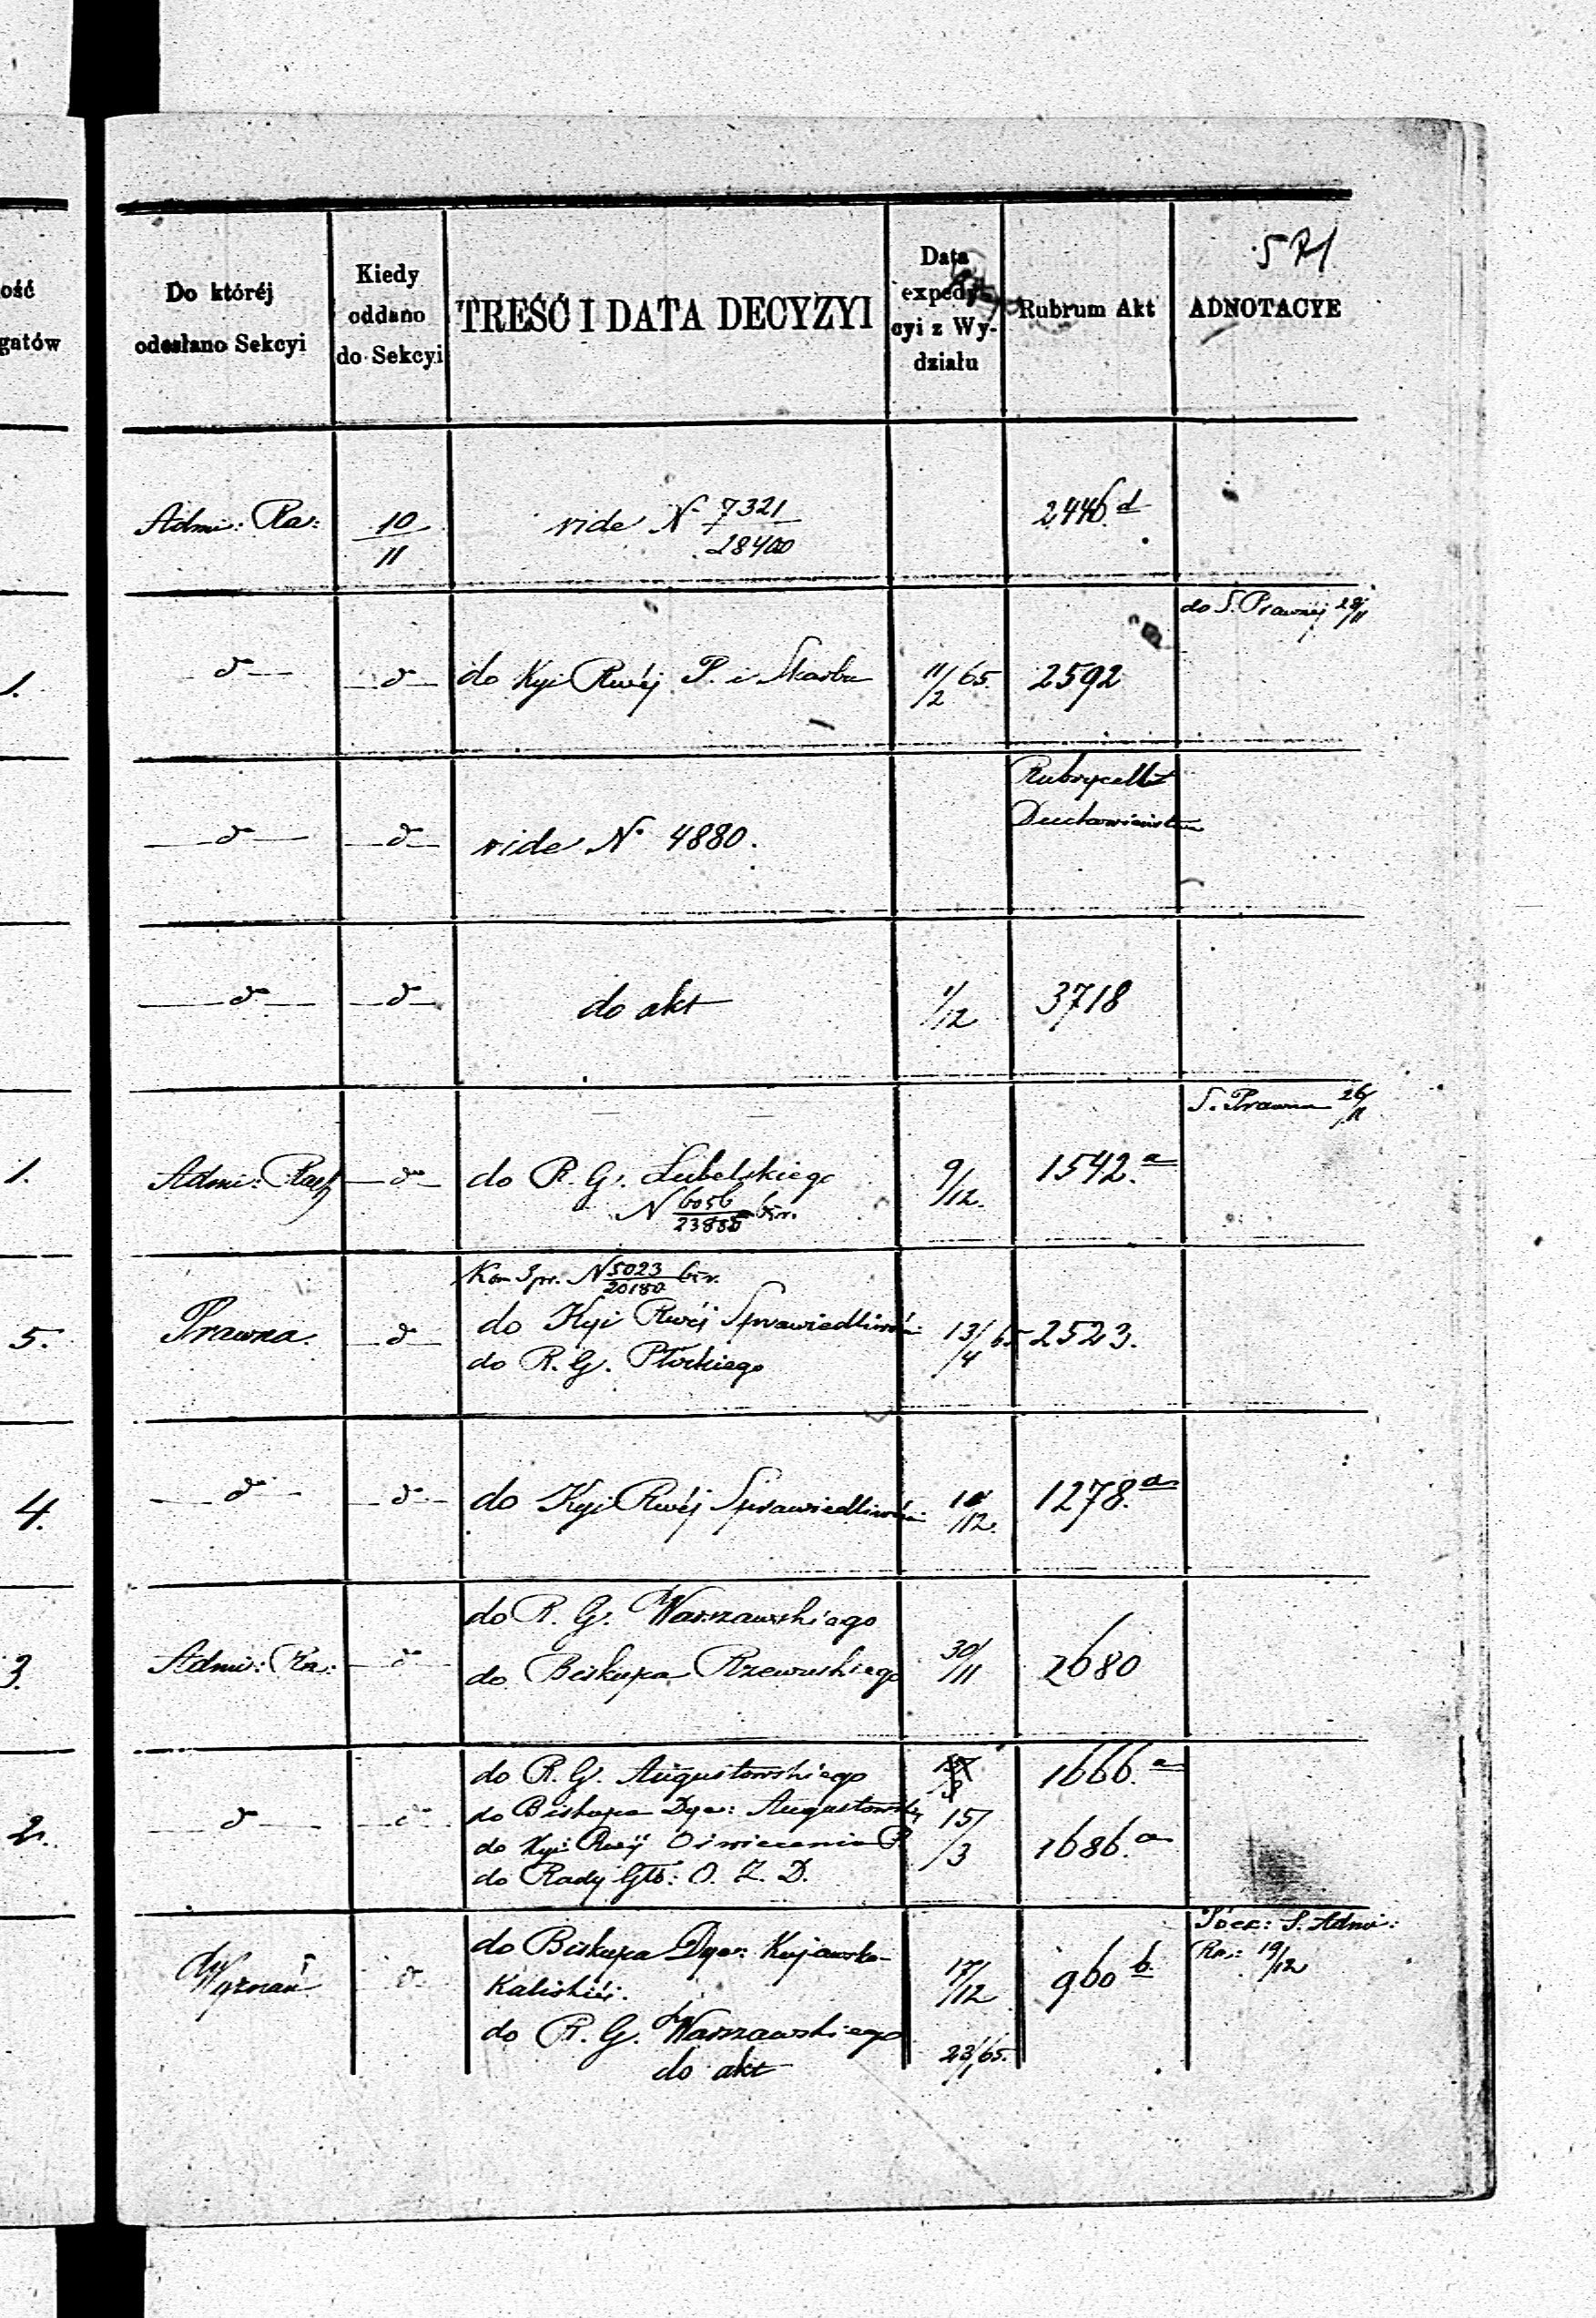 521
ość
gatów
Do któréj
odesłano Sekcyi
Kiedy
oddano
do Sekcyi
TREŚĆ I DATA DECYZYI
Data
expedy-
cyi z Wy-
działu
Rubrum Akt
ADNOTACYE
Admi: Ra: 10/11 vide N 7321/28400 2446.d
do S. Prawnéj 28/11
1. d° d° do Kyi Rwéj P. i Skarbu 11/2 65. 2592
Rubrycelle
Duchowieństwa
d° d° vide N° 4880.
d° d° do akt 1/12 3718
S. Prawna 26/11
1. Admi: d° do R. G. Lubelskiego 9/12. 1542.a
N 6056/23885
N 5023/20180
5. Prawna d° do Kyi Rwéj Sprawiedliwości 13/4 65 2523.
do R. G. Płockiego
4. d° d° do Kyi Rwéj Sprawiedliwości /12. 1278.a
do R. G. Warszawskiego
3. Admi: Ra: d° do Biskupa Rzewuskiego 30/11 2680
do R. G. Augustowskiego 1666.a
do Biskupa Dye: Augustowskiéj 15/3
2. d° d° do Kyi Rwéj Oświecenia P. 1686.a
do Rady Głó: O. Z. D.
S. Admi:
Ra: 19/12
Wyznań d° do Biskupa Dye: Kujawsko- 17/12 960 b.
Kaliskiéj.
do R. G. Warszawskiego
do akt 23/1 65.